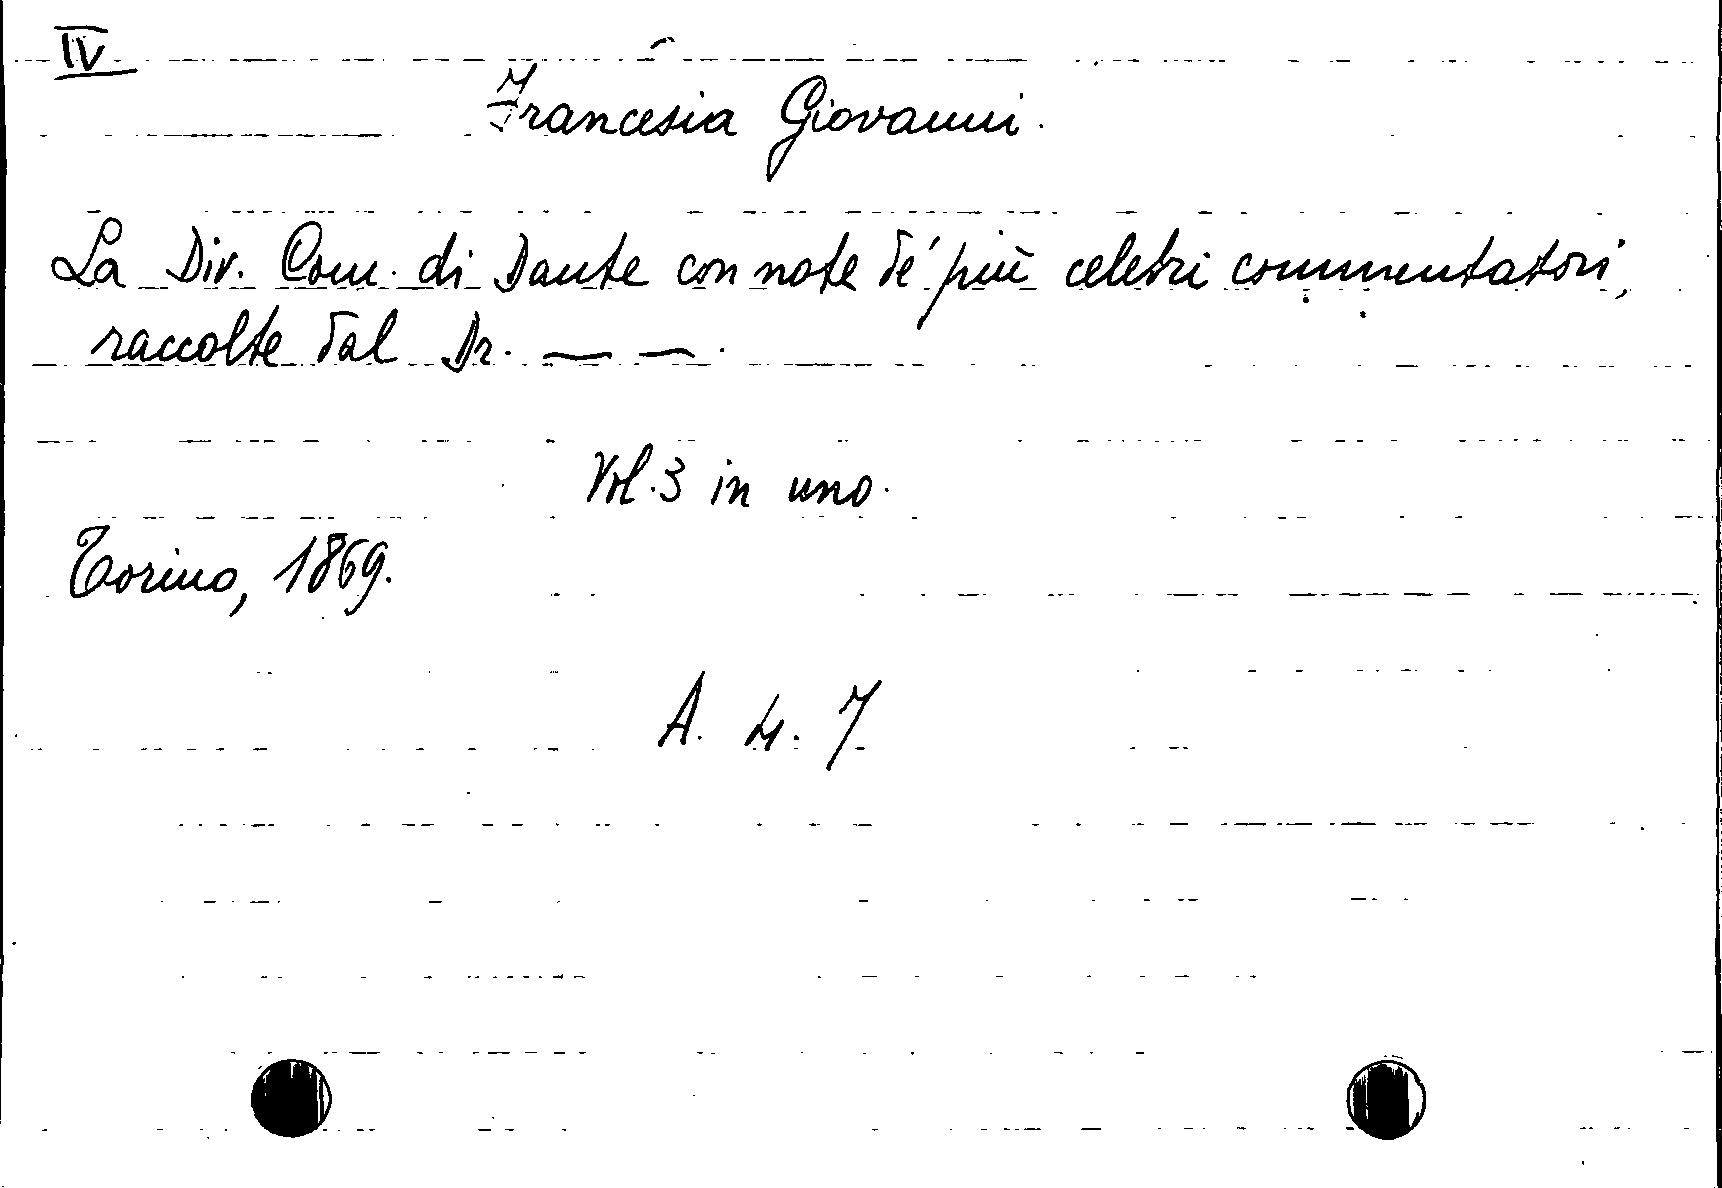 IV
Francesia Giovanni.
La Div. Com. di Dante con note de' più celebri commentatori,
raccolte dal Dr. — —.
Vol. 3 in uno.
Torino, 1869.
A. 4. 7